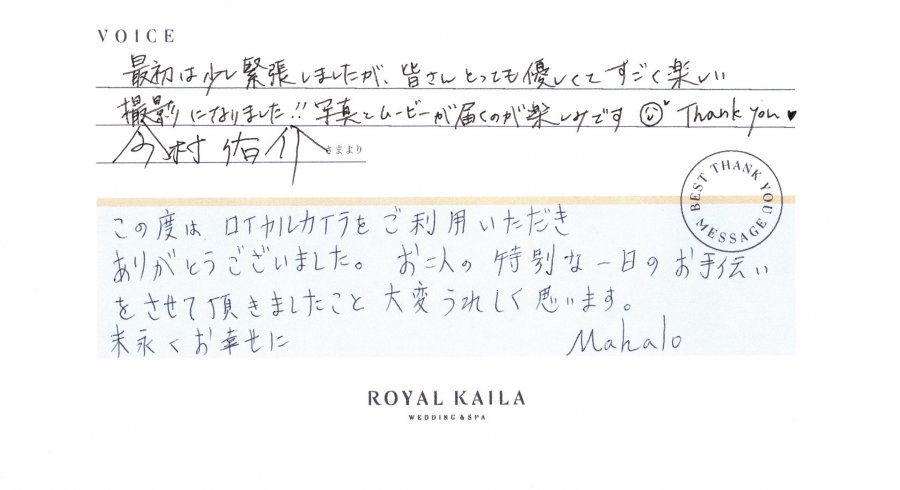 VOICE
最初は少し緊張しましたが、皆さんとっても優しくてすごく楽しい
撮影になりました!! 写真とムービーが届くのが楽しみです Thank you ♥
今村 佑介 さまより
BEST THANK YOU MESSAGE
この度は、ロイヤルカイラをご利用いただき
ありがとうございました。お二人の特別な一日のお手伝い
をさせて頂きましたこと大変うれしく思います。
末永くお幸せに Mahalo
ROYAL KAILA
WEDDING & SPA